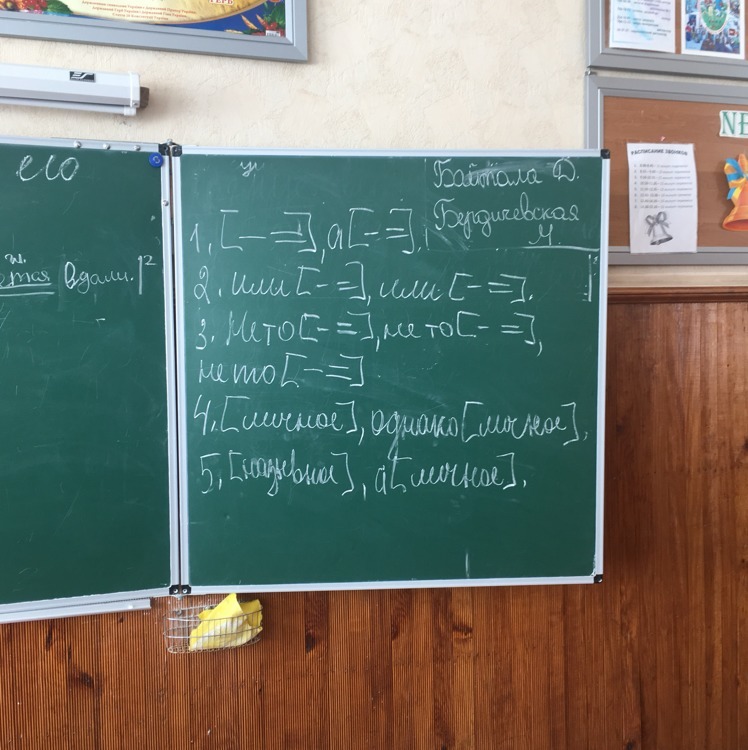 его
вдали.
Байтала Д.
Бердичевская
М.
1. [— =], а [- =].
2. или [- =], или [- =].
3. Не то [- =], не то [- =],
не то [- =]
4. [личное], однако [личное].
5. [назывное], а [личное].
РАСПИСАНИЕ ЗВОНКОВ
NE
ГЕРБ